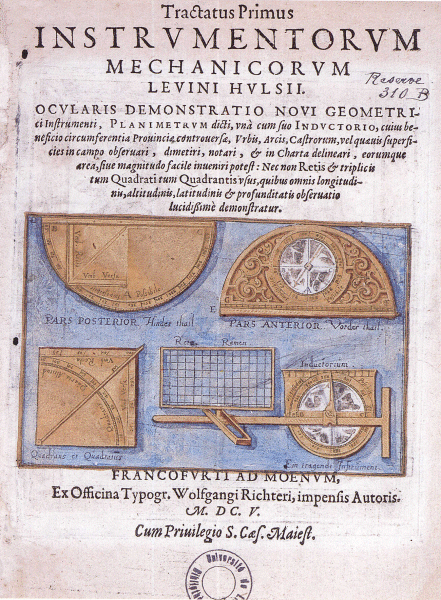 Tractatus Primus
INSTRVMENTORVM
MECHANICORVM
LEVINI HVLSII.
Reserve
310 B
OCVLARIS DEMONSTRATIO NOVI GEOMETRI-
ci Instrumenti, PLANIMETRVM dicti, vnà cum suo INDVCTORIO, cuius be-
neficio circumferentia Prouinciæ, controuersæ, Vrbis, Arcis, Castrorum, vel quauis superfi-
cies in campo obseruari, dimetiri, notari, & in Charta delineari, eorumque
area, siue magnitudo facile inueniri potest: Nec non Retis & triplicis
tum Quadrati tum Quadrantis vsus, quibus omnis longitudi-
nis, altitudinis, latitudinis & profunditatis obseruatio
lucidissimè demonstratur.
Vmb. Versa
PARS POSTERIOR Hinder thail
E
PARS ANTERIOR Vorder thail.
Rete.
Inductorium
Quadrans et Quadratus
Instrument.
FRANCOFVRTI AD MOENVM,
Ex Officina Typogr. Wolfgangi Richteri, impensis Autoris.
M. DC. V.
Cum Priuilegio S. Cæs. Maiest.
Université de